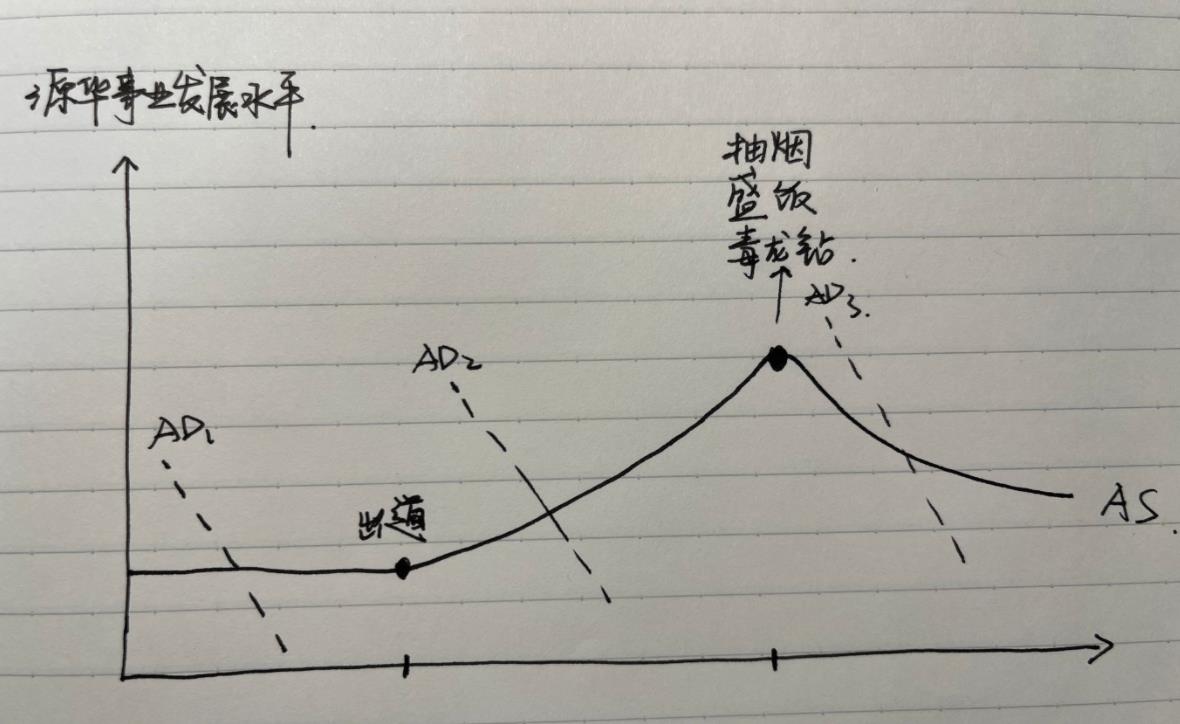 源华事业发展水平.
抽烟
盛饭
毒龙钻.
AD3.
AD2
AD1
出道
AS.